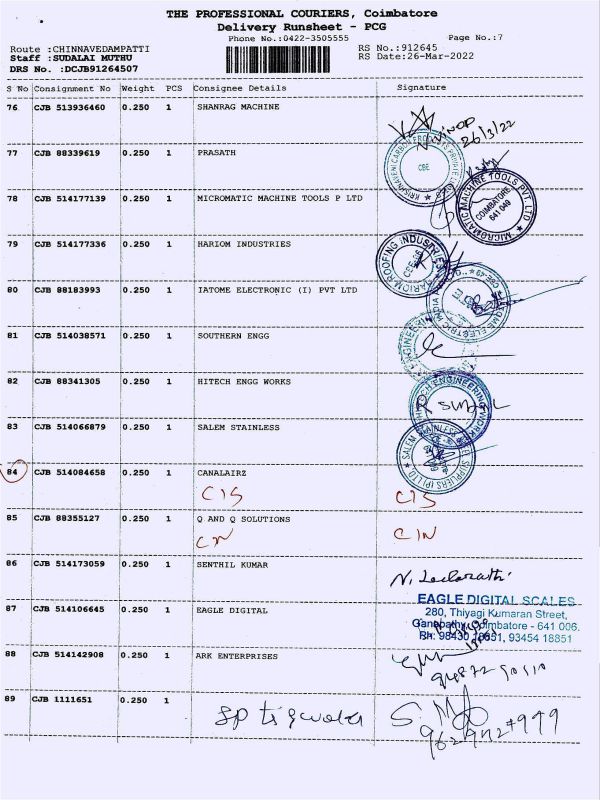 THE PROFESSIONAL COURIERS, Coimbatore
Delivery Runsheet - PCG
Phone No.:0422-3505555 Page No.:7
Route :CHINNAVEDAMPATTI RS No.:912645
Staff :SUDALAI MUTHU RS Date:26-Mar-2022
DRS No. :DCJB91264507
S No Consignment No Weight PCS Consignee Details Signature
76 CJB 513936460 0.250 1 SHANRAG MACHINE
VINOD 26/3/22
77 CJB 88339619 0.250 1 PRASATH
CBE
78 CJB 514177139 0.250 1 MICROMATIC MACHINE TOOLS P LTD
MICROMATIC MACHINE TOOLS PVT. LTD
COIMBATORE
641 049
79 CJB 514177336 0.250 1 HARIOM INDUSTRIES
HARIOM ROOFING INDUSTRIES
80 CJB 88183993 0.250 1 IATOME ELECTRONIC (I) PVT LTD
81 CJB 514038571 0.250 1 SOUTHERN ENGG
82 CJB 88341305 0.250 1 HITECH ENGG WORKS
HITECH ENGINEERING WORK
83 CJB 514066879 0.250 1 SALEM STAINLESS
84 CJB 514084658 0.250 1 CANALAIRZ
CIS CIS
85 CJB 88355127 0.250 1 Q AND Q SOLUTIONS
CIN CIN
86 CJB 514173059 0.250 1 SENTHIL KUMAR
87 CJB 514106645 0.250 1 EAGLE DIGITAL
EAGLE DIGITAL SCALES
280, Thiyagi Kumaran Street,
Ganapathy, Coimbatore - 641 006.
Ph: 98430 18851, 93454 18851
88 CJB 514142908 0.250 1 ARK ENTERPRISES
89 CJB 1111651 0.250 1